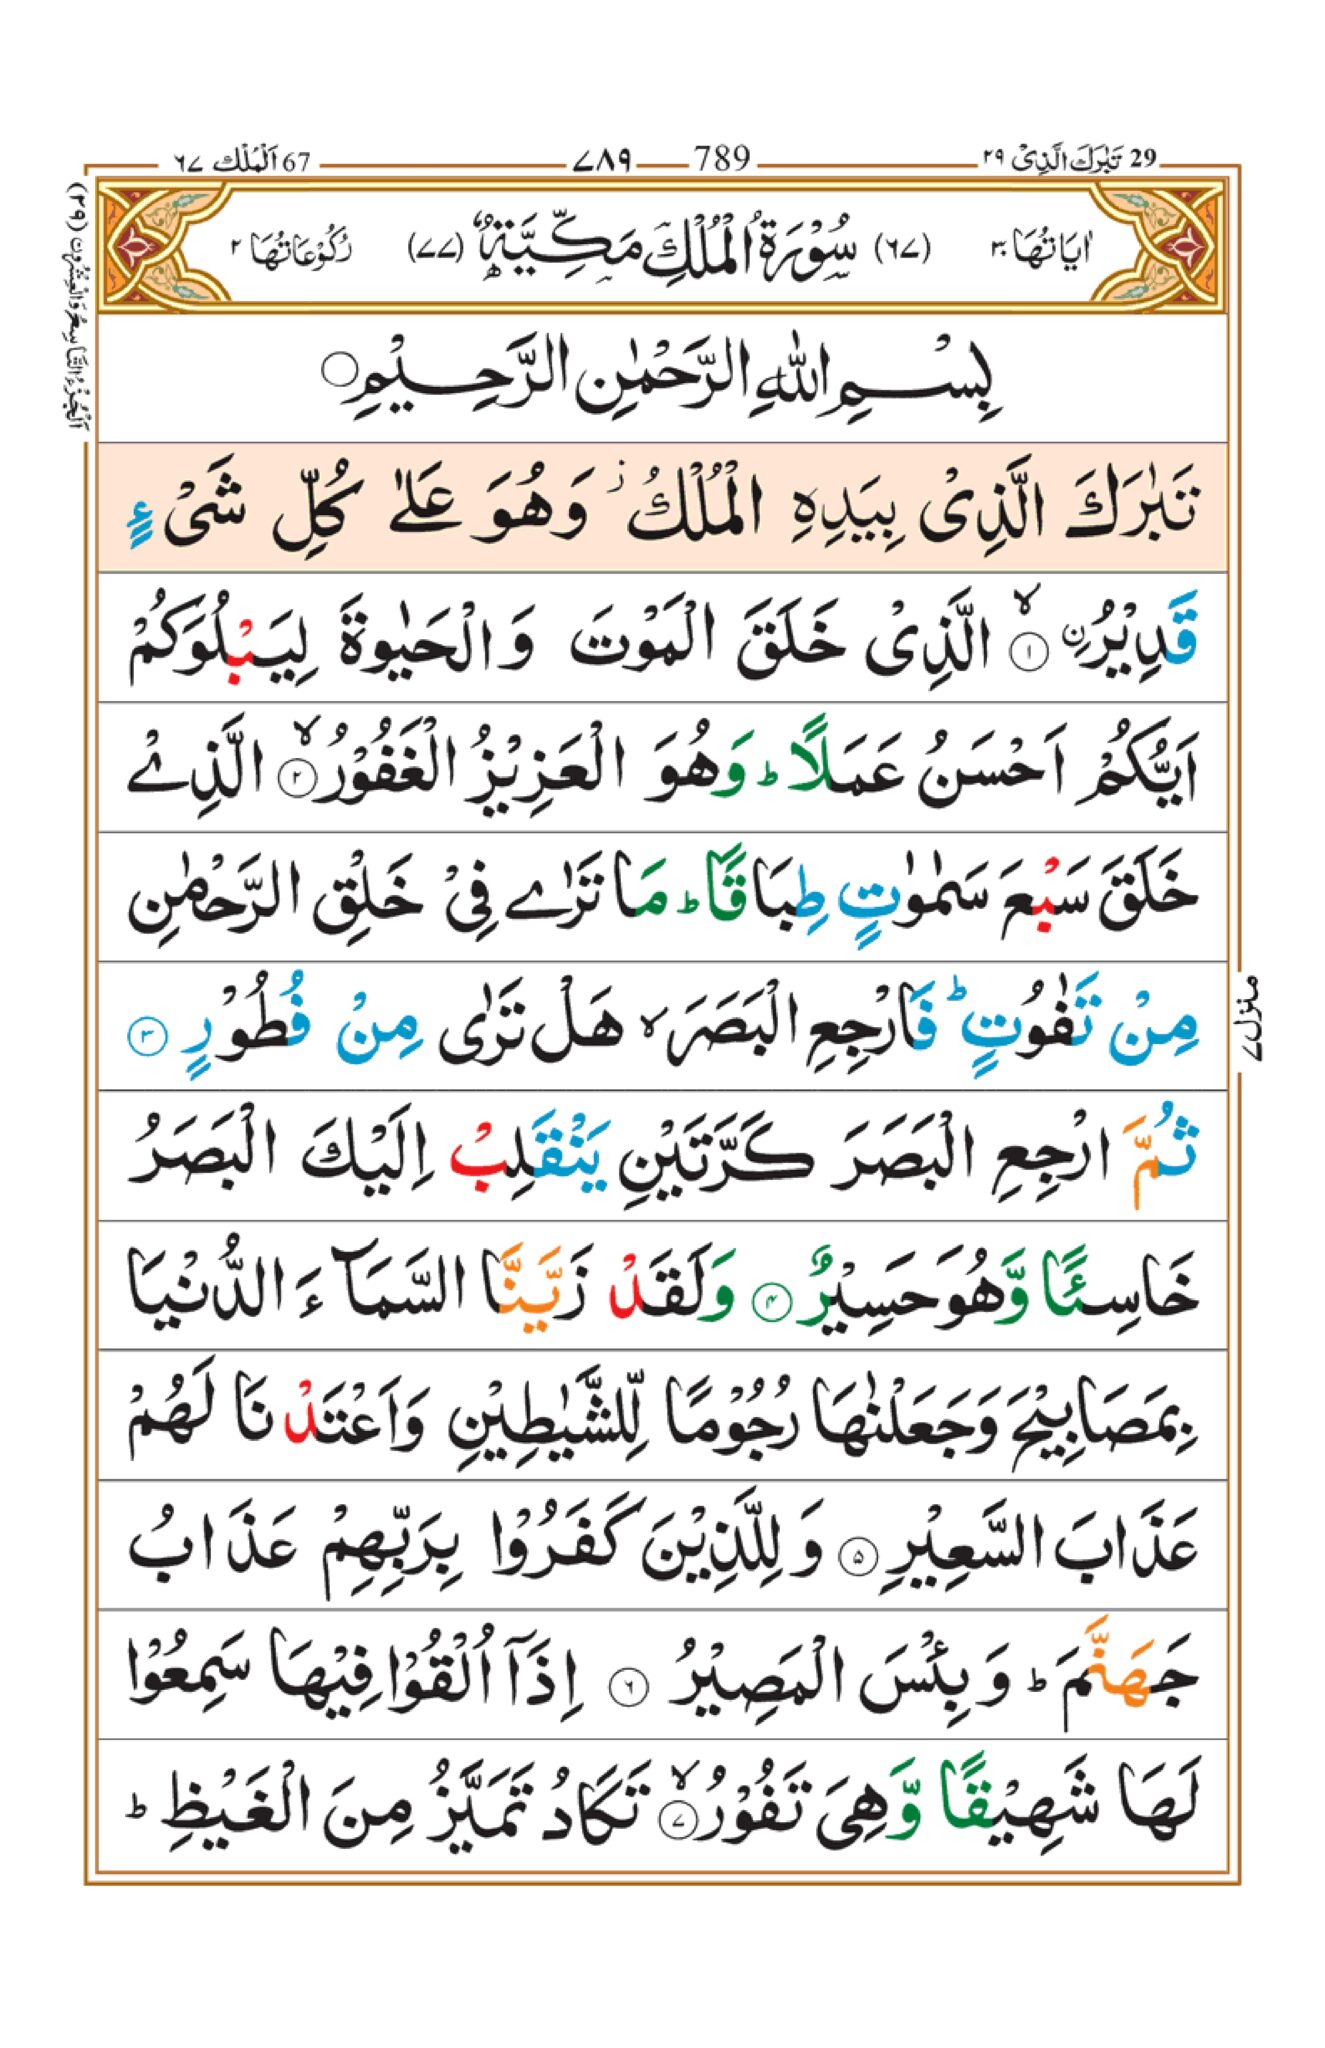 29 تَبٰرَكَ الَّذِیْ ٢٩
789 ٧٨٩
67 اَلْمُلْك ٦٧
اٰیَاتُهَا ٣٠ (٦٧) سُوْرَةُ الْمُلْكِ مَكِّیَّةٌ (٧٧) رُكُوْعَاتُهَا ٢
اَلْجُزْءُ التَّاسِعُ وَالْعِشْرُوْن (٢٩)
بِسْمِ اللّٰهِ الرَّحْمٰنِ الرَّحِیْمِ ۝
تَبٰرَكَ الَّذِیْ بِیَدِهِ الْمُلْكُ ؗ وَهُوَ عَلٰى كُلِّ شَیْءٍ
قَدِیْرُ ۨ ۙ ١ الَّذِیْ خَلَقَ الْمَوْتَ وَ الْحَیٰوةَ لِیَبْلُوَكُمْ
اَیُّكُمْ اَحْسَنُ عَمَلًا ؕ وَهُوَ الْعَزِیْزُ الْغَفُوْرُ ۙ ٢ الَّذِیْ
خَلَقَ سَبْعَ سَمٰوٰتٍ طِبَاقًا ؕ مَا تَرٰى فِیْ خَلْقِ الرَّحْمٰنِ
مِنْ تَفٰوُتٍ ؕ فَارْجِعِ الْبَصَرَ ۙ هَلْ تَرٰى مِنْ فُطُوْرٍ ٣
ثُمَّ ارْجِعِ الْبَصَرَ كَرَّتَیْنِ یَنْقَلِبْ اِلَیْكَ الْبَصَرُ
خَاسِئًا وَّهُوَ حَسِیْرٌ ٤ وَلَقَدْ زَیَّنَّا السَّمَآءَ الدُّنْیَا
بِمَصَابِیْحَ وَجَعَلْنٰهَا رُجُوْمًا لِّلشَّیٰطِیْنِ وَاَعْتَدْنَا لَهُمْ
عَذَابَ السَّعِیْرِ ٥ وَلِلَّذِیْنَ كَفَرُوْا بِرَبِّهِمْ عَذَابُ
جَهَنَّمَ ؕ وَبِئْسَ الْمَصِیْرُ ٦ اِذَاۤ اُلْقُوْا فِیْهَا سَمِعُوْا
لَهَا شَهِیْقًا وَّهِیَ تَفُوْرُ ۙ ٧ تَكَادُ تَمَیَّزُ مِنَ الْغَیْظِ ؕ
منزل ٧